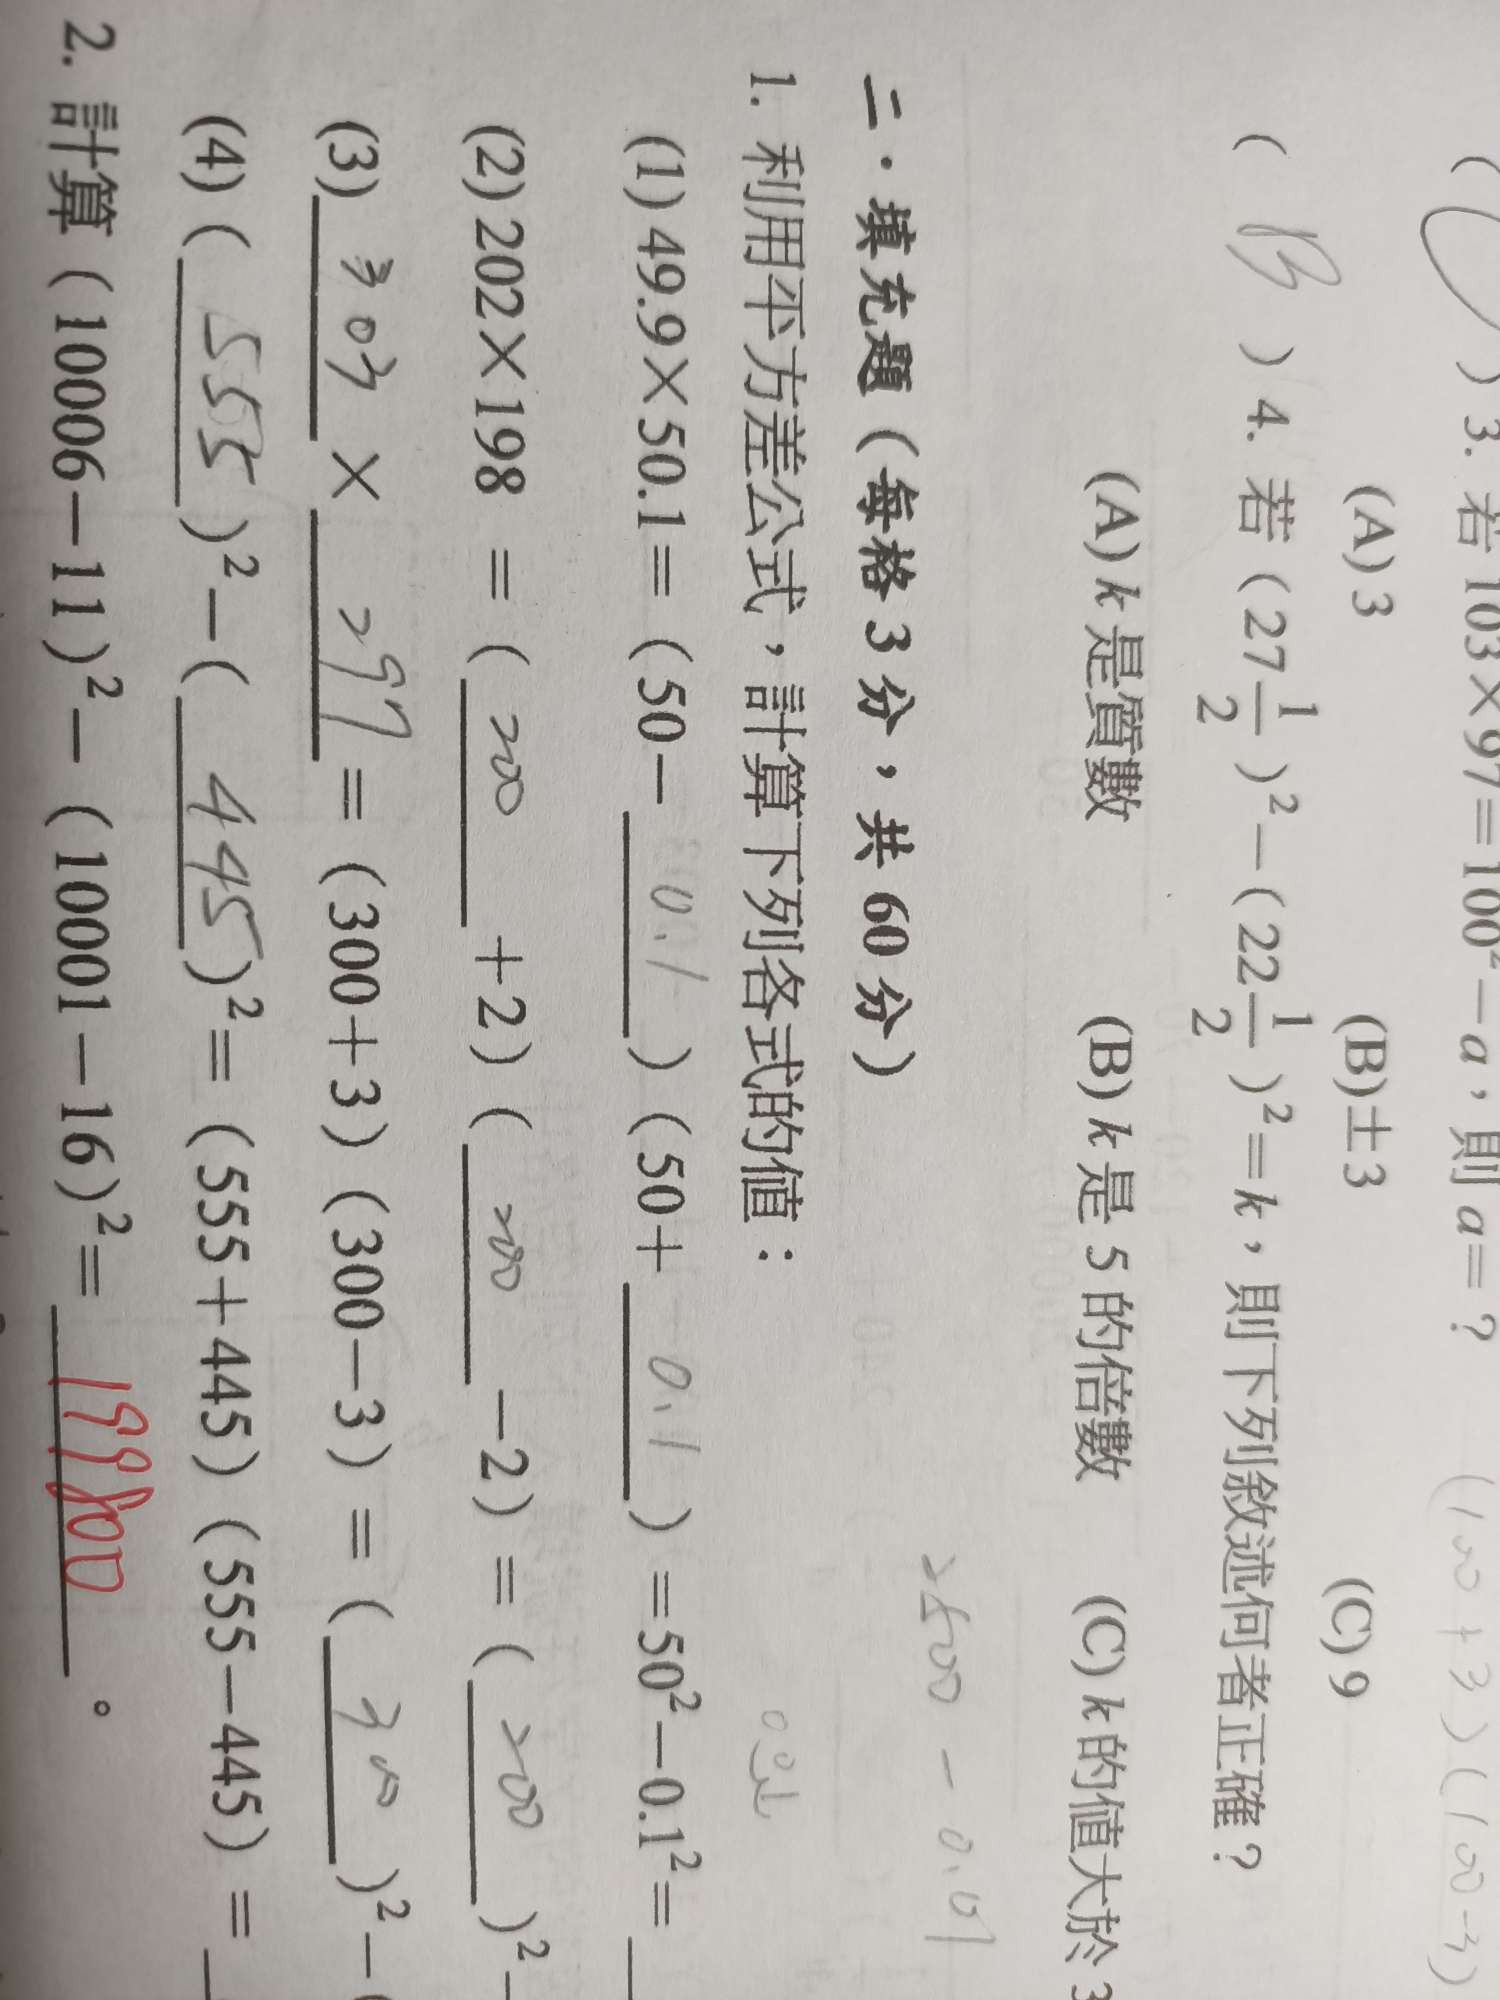 ( ) 3. 若 103×97=100²-a，則 a=？ (100+3)(100-3)
(A) 3 (B) ±3 (C) 9
( B ) 4. 若 (27 1/2)²-(22 1/2)²=k，則下列敘述何者正確？
(A) k 是質數 (B) k 是 5 的倍數 (C) k 的值大於 3
2500 - 0.01
二．填充題（每格 3 分，共 60 分）
1. 利用平方差公式，計算下列各式的值：
(1) 49.9×50.1=（50-0.1）（50+0.1）=50²-0.1²=
(2) 202×198 =（200+2）（200-2）=（200）²-
(3) 303 × 297 =（300+3）（300-3）=（300）²-（
(4)（555）²-（445）²=（555+445）（555-445）=
2. 計算（10006-11）²-（10001-16）²=19800。